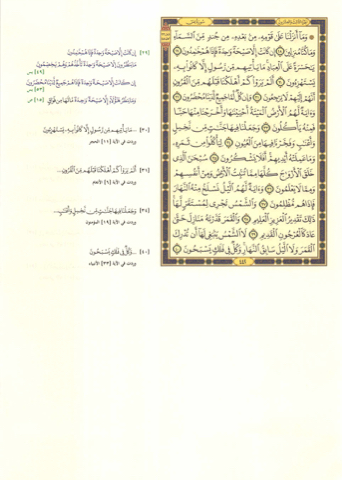 ۞ وَمَا أَنزَلْنَا عَلَىٰ قَوْمِهِ مِنۢ بَعْدِهِ مِن جُندٍ مِّنَ السَّمَاءِ
وَمَا كُنَّا مُنزِلِينَ ٢٨ إِن كَانَتْ إِلَّا صَيْحَةً وَاحِدَةً فَإِذَا هُمْ خَامِدُونَ ٢٩
يَا حَسْرَةً عَلَى الْعِبَادِ مَا يَأْتِيهِم مِّن رَّسُولٍ إِلَّا كَانُوا بِهِ
يَسْتَهْزِئُونَ ٣٠ أَلَمْ يَرَوْا كَمْ أَهْلَكْنَا قَبْلَهُم مِّنَ الْقُرُونِ
أَنَّهُمْ إِلَيْهِمْ لَا يَرْجِعُونَ ٣١ وَإِن كُلٌّ لَّمَّا جَمِيعٌ لَّدَيْنَا مُحْضَرُونَ ٣٢
وَآيَةٌ لَّهُمُ الْأَرْضُ الْمَيْتَةُ أَحْيَيْنَاهَا وَأَخْرَجْنَا مِنْهَا حَبًّا
فَمِنْهُ يَأْكُلُونَ ٣٣ وَجَعَلْنَا فِيهَا جَنَّاتٍ مِّن نَّخِيلٍ
وَأَعْنَابٍ وَفَجَّرْنَا فِيهَا مِنَ الْعُيُونِ ٣٤ لِيَأْكُلُوا مِن ثَمَرِهِ
وَمَا عَمِلَتْهُ أَيْدِيهِمْ أَفَلَا يَشْكُرُونَ ٣٥ سُبْحَانَ الَّذِي
خَلَقَ الْأَزْوَاجَ كُلَّهَا مِمَّا تُنبِتُ الْأَرْضُ وَمِنْ أَنفُسِهِمْ
وَمِمَّا لَا يَعْلَمُونَ ٣٦ وَآيَةٌ لَّهُمُ اللَّيْلُ نَسْلَخُ مِنْهُ النَّهَارَ
فَإِذَا هُم مُّظْلِمُونَ ٣٧ وَالشَّمْسُ تَجْرِي لِمُسْتَقَرٍّ لَّهَا
ذَٰلِكَ تَقْدِيرُ الْعَزِيزِ الْعَلِيمِ ٣٨ وَالْقَمَرَ قَدَّرْنَاهُ مَنَازِلَ حَتَّىٰ
عَادَ كَالْعُرْجُونِ الْقَدِيمِ ٣٩ لَا الشَّمْسُ يَنبَغِي لَهَا أَن تُدْرِكَ
الْقَمَرَ وَلَا اللَّيْلُ سَابِقُ النَّهَارِ وَكُلٌّ فِي فَلَكٍ يَسْبَحُونَ ٤٠
[٢٩] إِن كَانَتْ إِلَّا صَيْحَةً وَاحِدَةً فَإِذَا هُمْ خَامِدُونَ
مَا يَنظُرُونَ إِلَّا صَيْحَةً وَاحِدَةً تَأْخُذُهُمْ وَهُمْ يَخِصِّمُونَ
[٤٩] يس
إِن كَانَتْ إِلَّا صَيْحَةً وَاحِدَةً فَإِذَا هُمْ جَمِيعٌ لَّدَيْنَا مُحْضَرُونَ
[٥٣] يس
وَمَا يَنظُرُ هَٰؤُلَاءِ إِلَّا صَيْحَةً وَاحِدَةً مَّا لَهَا مِن فَوَاقٍ [١٥] ص
[٣٠] ... مَا يَأْتِيهِم مِّن رَّسُولٍ إِلَّا كَانُوا بِهِ يَسْتَهْزِئُونَ
وردت في الآية [١١] الحجر
[٣١] أَلَمْ يَرَوْا كَمْ أَهْلَكْنَا قَبْلَهُم مِّنَ الْقُرُونِ ...
وردت في الآية [٦] الأنعام
[٣٤] وَجَعَلْنَا فِيهَا جَنَّاتٍ مِّن نَّخِيلٍ وَأَعْنَابٍ ...
وردت في الآية [١٩] المؤمنون
[٤٠] ... وَكُلٌّ فِي فَلَكٍ يَسْبَحُونَ
وردت في الآية [٣٣] الأنبياء